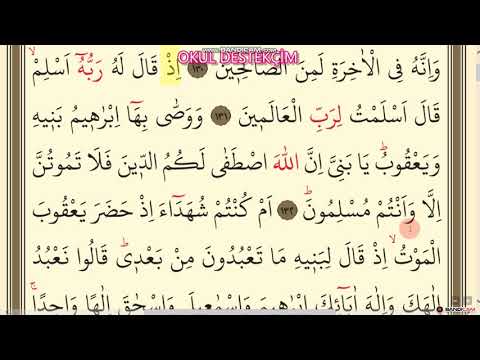 www.BANDICAM.com
OKUL DESTEKÇİM
وَاِنَّهُ فِي الْاٰخِرَةِ لَمِنَ الصَّالِح۪ينَ ١٣٠ اِذْ قَالَ لَهُ رَبُّهُٓ اَسْلِمْۙ
قَالَ اَسْلَمْتُ لِرَبِّ الْعَالَم۪ينَ ١٣١ وَوَصّٰى بِهَٓا اِبْرٰه۪يمُ بَن۪يهِ
وَيَعْقُوبُۜ يَا بَنِيَّ اِنَّ اللّٰهَ اصْطَفٰى لَكُمُ الدّ۪ينَ فَلَا تَمُوتُنَّ
اِلَّا وَاَنْتُمْ مُسْلِمُونَۜ ١٣٢ اَمْ كُنْتُمْ شُهَدَٓاءَ اِذْ حَضَرَ يَعْقُوبَ
الْمَوْتُۙ اِذْ قَالَ لِبَن۪يهِ مَا تَعْبُدُونَ مِنْ بَعْد۪يۜ قَالُوا نَعْبُدُ
اِلٰهَكَ وَاِلٰهَ اٰبَٓائِكَ اِبْرٰه۪يمَ وَاِسْمٰع۪يلَ وَاِسْحٰقَ اِلٰهًا وَاحِدًاۚ
BANDICAM